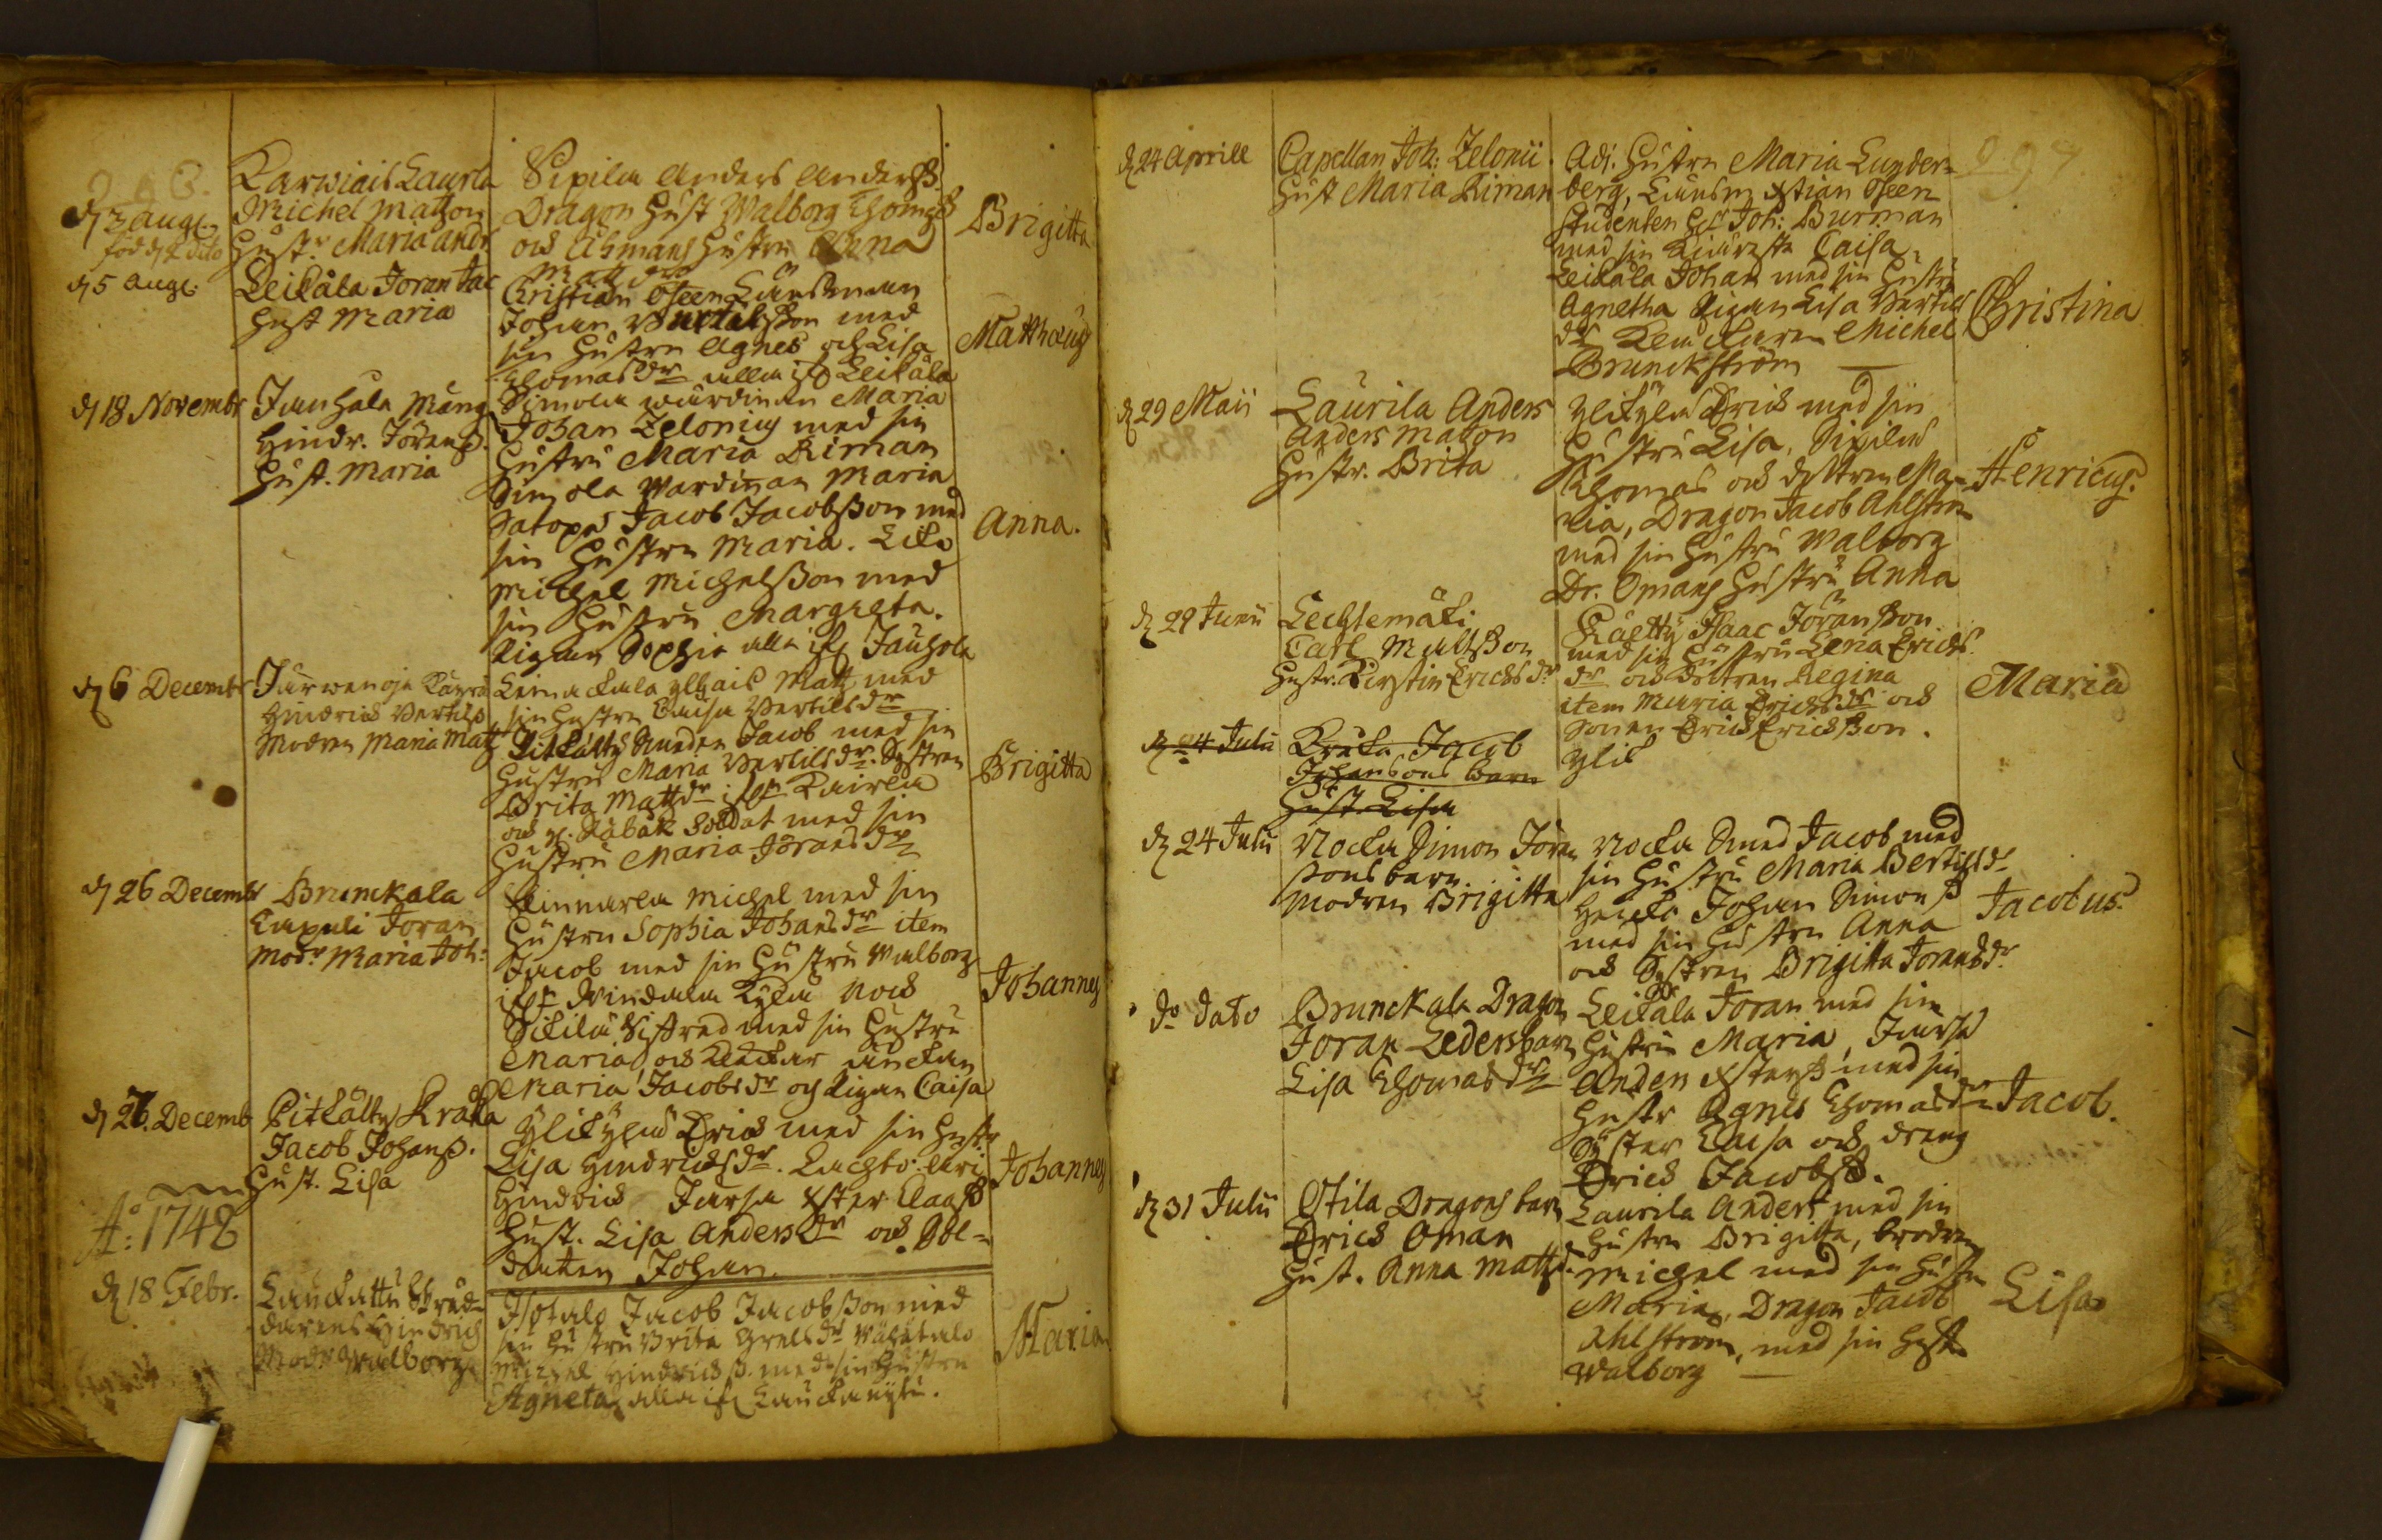 d 3 Augl.
föd d 2 dito
Karwiais Laurla
Michel Matzon
Hustr. Maria Andr
Sipilä Anders Anderss.
Dragon Hust Walborg Thomæ
och Ahmans Hustru Anna
Matz dr
Brigitta
d 5 Augl.
Leikåla Joran Jac
Hust Maria
Christian Oseen Länsman
Johan Bertelsson med
sin Hustru Agnes och Lisa
Thomasdr alla ifr Leikåla
Matthæus
d 18 Novembr
Jauhala Mång
Hindr. Jöranss.
Hust. Maria
Simola wärdinan Maria
Johan Zelonius med sin
Hustru Maria Riman
Simola wardinan Maria
Satopä Jacob Jacobsson med
sin Hustru Maria.
Michel Michelsson med
sin Hustru Margreta.
Pigan Sophia alla ifr Jauhola
Anna.
d 6 Decembr
Järwenoja
Hindrich Bertils
Modren Maria Matz
Matz med
sin Hustru Caisa Bertilsdr
Pitkälty Smeden Jacob med sin
Hustru Maria Bertilsdr. Systren
Brita Mattzdr
Soldat med sin
Hustru Maria Joransdr
Brigitta
d 26 Decembr
Brunckala
Joran
Modr Maria Joh:
Kinnarla Michel med sin
Hustru Sophia Johansdr item
Jacob med sin Hustru Walborg
Sikilä Sifred med sin Hustru
Maria, och Klockar änckan
Maria Jacobsdr och Pigan Caisa
Johannes
d 26. Decemb
Pitkälty Kråka
Jacob Johanss.
Hust. Lisa
Ylikylä Erich med sin Hustru
Lisa Hindrichsdr.
Hindrich Jursa
Hust. Lisa Andersdr och Sol-
daten Johan.
Johannes
A:o 1748
d 18 Febr.
Hindrich
Modr Walborg
Isotalo Jacob Jacobsson med
sin Hustru Brita Grelsdr Wähätalo
Michel Hindrichss. med sin Hustru
Agneta, alla ifr
Maria
d 24 Aprill
Capellan Joh: Zelonii
Hust Maria Riman
Adj. Hustru Maria Lunder-
berg, Länsm Xstian Oseen
Studenten Joh: Burman
med sin Käresta Caisa,
Leikåla Johan med sin Hustru
Agnetha Pigan Lisa Bertils
dr Klockaren Michel
Brunckström
Christina
d 29 Maii
Laurila Anders
Anders Matzon
Hustr. Brita
Ylikylä Erich med sin
Hustru Lisa, Sipilä
Thomas och dottren Ma-
ria, Dragon Jacob Ahlström
med sin Hustru Walborg
Dr. Omans Hustru Anna
Henricus.
d 29 Junii
Lechtemäki
Carl Mattsson
Hustr. Kirstin Erichsdr
Isaac Joransson
med sin Hustru Lena Erichs
dr och dottren Regina
item Maria Erichsdr och
Sonen Erich Erichsson.
Maria
d 24 Julii
Kråka Jacob
Johansons Barn
Hust Lisa
d 24 Julii
Nocka Simon Jöran
ssons barn
Modren Brigitta
Nocka Smed Jacob med
sin Hustru Maria Bertilsdr
Johan Simonss
med sin Hustru Anna
och Systren Brigitta Joransdr
Jacobus.
do dato
Brunckala Dragon
Joran Leders barn
Lisa Thomasdr
Leikåla Joran med sin
Hustru Maria, Jursa
med sin
Hustr Agnes Thomasdr
Syster Caisa och dreng
Erich Jacobss.
Jacob.
d 31 Julii
Otila Dragons barn
Erich Oman
Hust. Anna Matzd.
Laurila Anders med sin
Hustru Brigitta, brodren
Michel med sin Hustru
Maria, Dragon Jacob
Ahlström, med sin Hustru
Walborg
Lisa